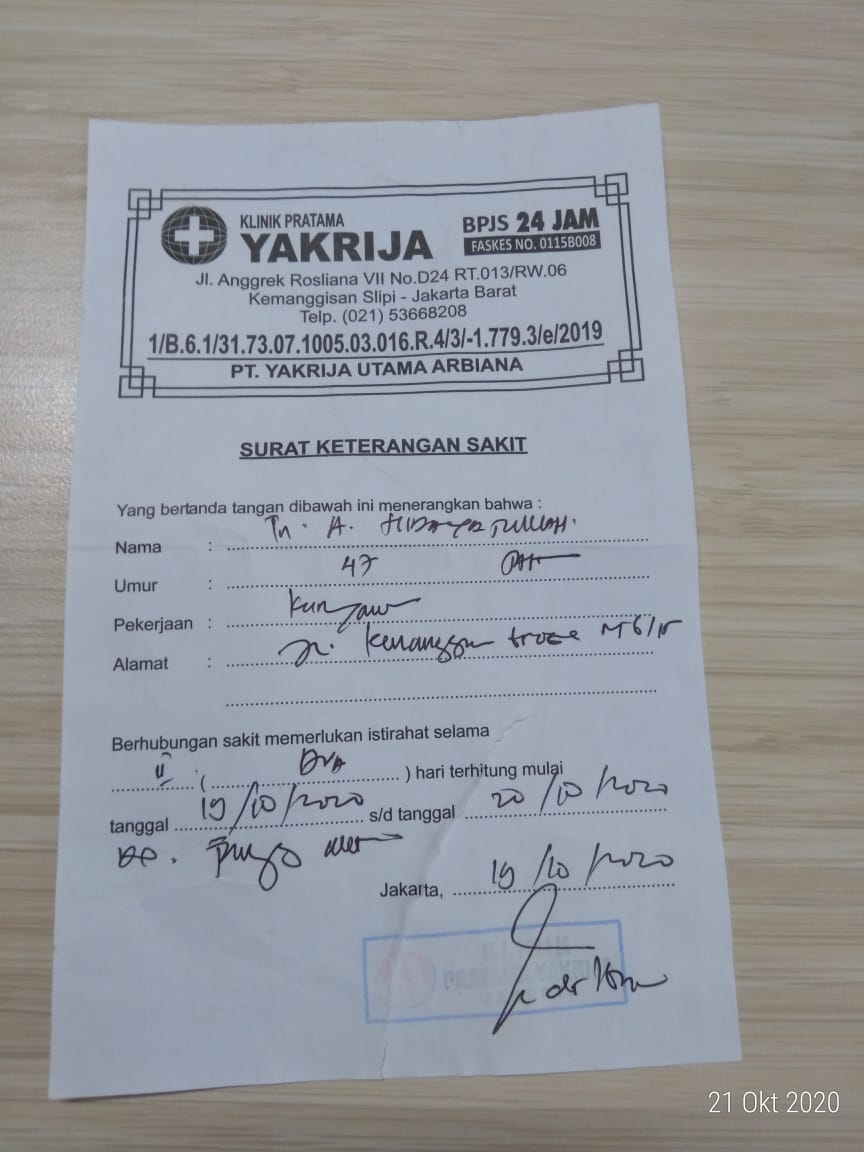 KLINIK PRATAMA
YAKRIJA
BPJS 24 JAM
FASKES NO. 0115B008
Jl. Anggrek Rosliana VII No.D24 RT.013/RW.06
Kemanggisan Slipi - Jakarta Barat
Telp. (021) 53668208
1/B.6.1/31.73.07.1005.03.016.R.4/3/-1.779.3/e/2019
PT. YAKRIJA UTAMA ARBIANA
SURAT KETERANGAN SAKIT
Yang bertanda tangan dibawah ini menerangkan bahwa :
Nama : Tn. A.
Umur : 47
Pekerjaan :
Alamat : Jl.
Berhubungan sakit memerlukan istirahat selama
II ( Dua ) hari terhitung mulai
tanggal 19/10/2020 s/d tanggal 20/10/2020
Jakarta, 19/10/2020
KLINIK
PRATAMA YAKRIJA
21 Okt 2020